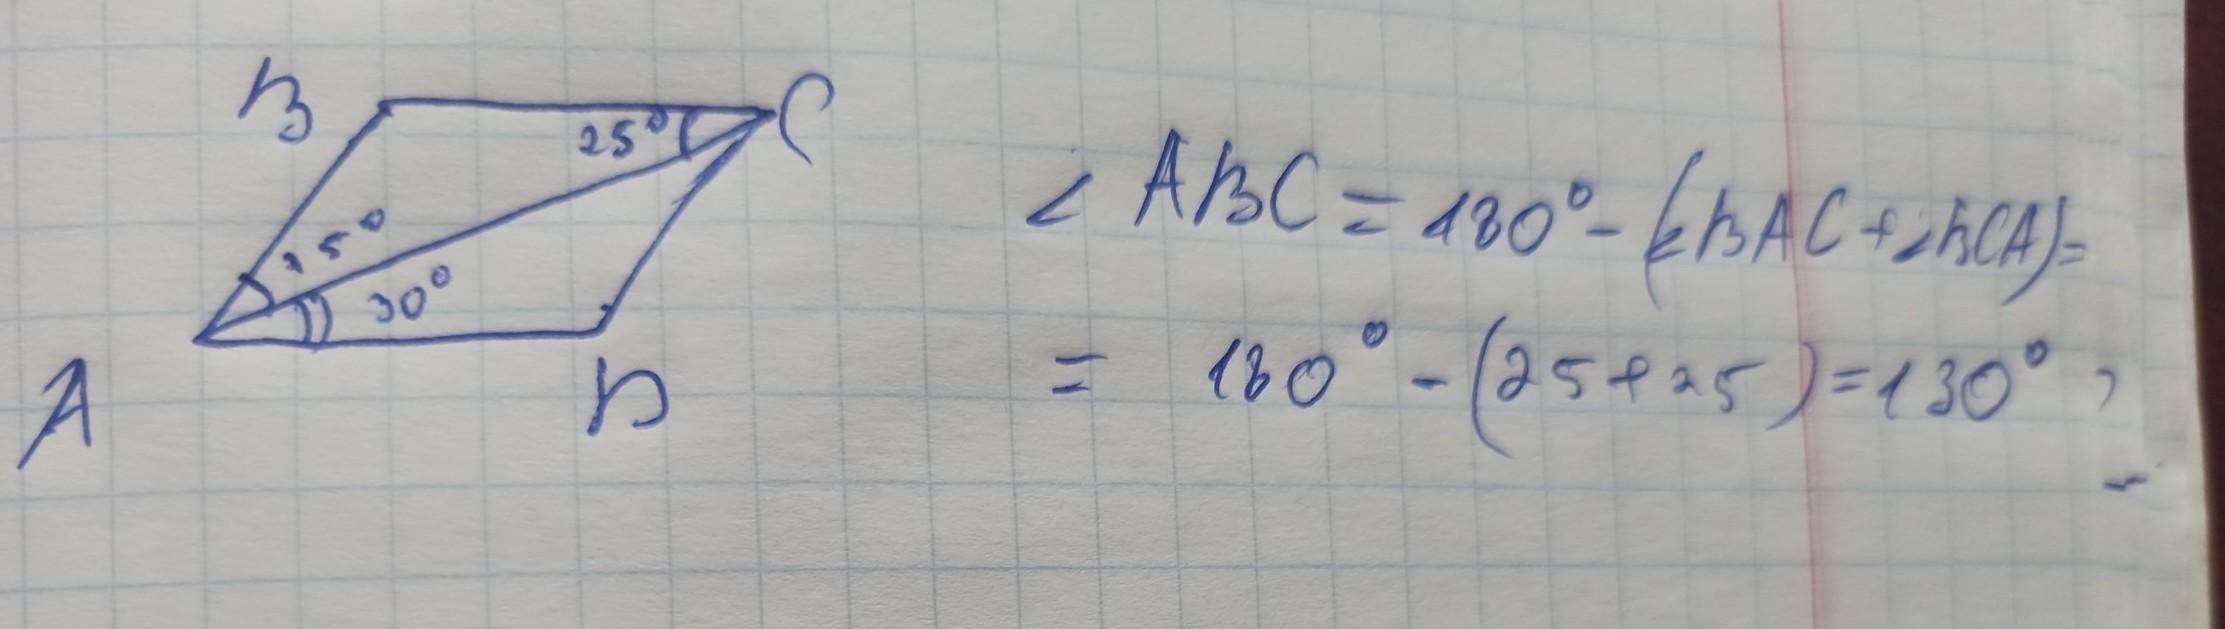 B
C
25°
25°
30°
A
D
∠ ABC = 180° - (∠BAC + ∠BCA) =
= 180° - (25 + 25) = 130°